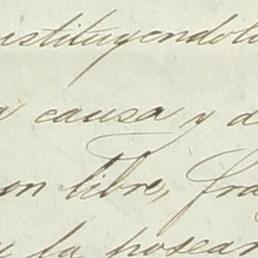 nstituyendolo
causa y d
on libre, fra
y la posean